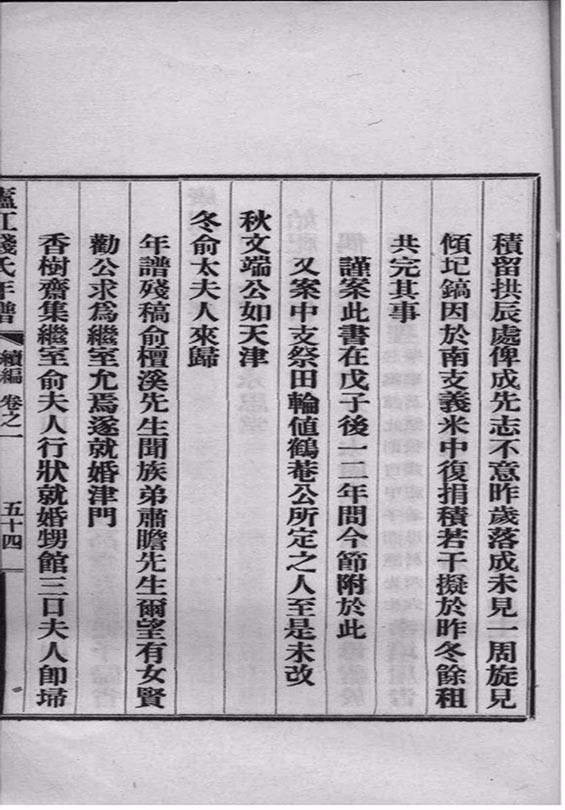 積留拱辰處俾成先志不意昨歲落成未見一周旋見
傾圮鎬因於南支義米中復捐積若干擬於昨冬餘租
共完其事
謹案此書在戊子後一二年間今節附於此
又案中支祭田輪值鶴菴公所定之人至是未改
秋文端公如天津
冬俞太夫人來歸
年譜殘稿俞檀溪先生聞族弟肅瞻先生爾望有女賢
勸公求爲繼室允焉遂就婚津門
香樹齋集繼室俞夫人行狀就婚甥館三日夫人卽埽
廬江錢氏年譜 續編 卷之一 五十四